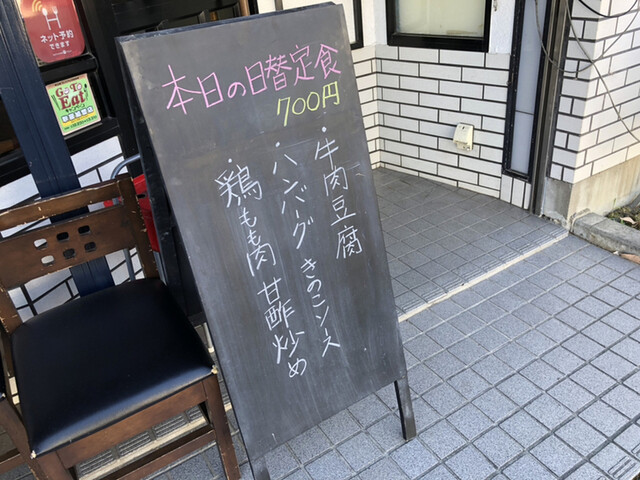 本日の日替定食
700円
・牛肉豆腐
・ハンバーグ きのこソース
・鶏もも肉 甘酢炒め
ネット予約
できます
Go To
Eat
キャンペーン